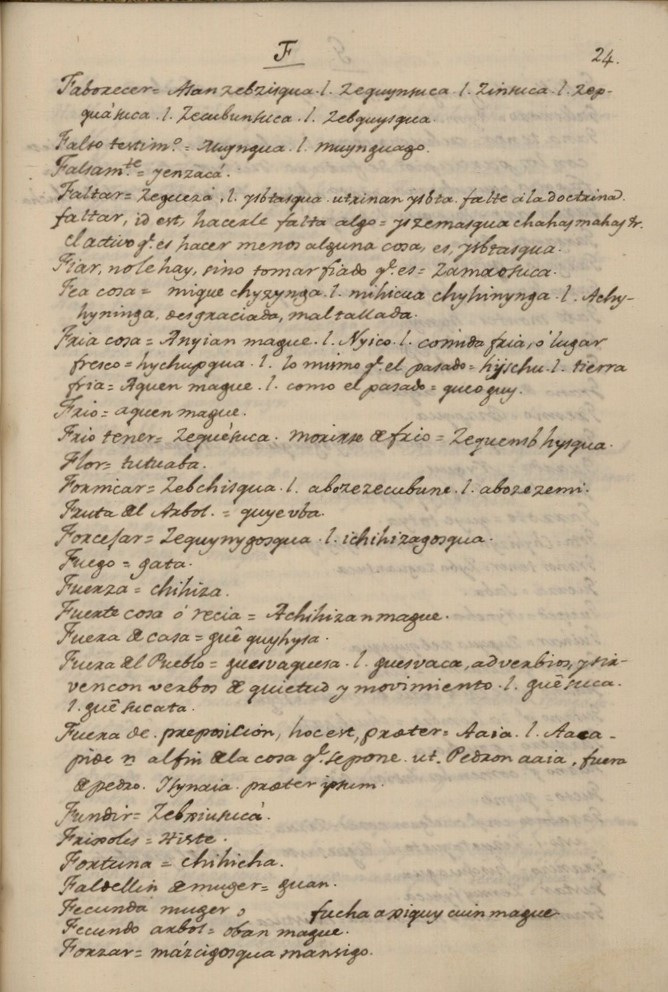 F
24.
Faborecer= Asan zebzisqua. l. zeguynsuca. l. Zinsuca. l. zep-
quásuca. l. Zecubunsuca. l. Zebquysqua.
Falso testim.º = Muyngua. l. muynguago.
Falsam.te = yenzacá.
Faltar= Zegueza, l. ysbtasqua. utzinan ysbta. falte á la doctrina.
faltar, id est, hacerle falta algo= yszemasqua chahas mahas &.
el activo q.e es hacer menos alguna cosa, es, ysbtasqua.
Fiar, no le hay, sino tomar fiado q.e es= Zamaosuca.
Fea cosa= mique chyzynga. l. mihicua chyhinynga. l. Achy-
hyninga, desgraciada, mal tallada.
Fria cosa= Anyian mague. l. Nyico. l. comida fria, ó lugar
fresco= hychupqua. l. lo mismo q.e el pasado= hijschu. l. tierra
fria= Aquen mague. l. como el pasado= queoguy.
Frio= aquen mague.
Frio tener= Zequésuca. morirse de frio= Zequemb hysqua.
Flor= tutuaba.
Fornicar= Zebchisqua. l. abozezecubune. l. abozezemi.
Fruta del Arbol. = quye vba.
Forcejar= Zequynygosqua. l. ichihizagosqua.
Fuego = gata.
Fuerza= chihiza.
Fuerte cosa ó recia= Achihizan mague.
Fuera de casa= guê quyhysa.
Fuera del Pueblo= guesvaquesa. l. guesvaca, adverbios, y sir-
ven con verbos de quietud y movimiento. l. guêsuca.
l. guê sucata.
Fuera de. preposición, hoc est, præter= Aaia. l. Aaca-
pide n al fin de la cosa q.e se pone. ut. Pedron aaia, fuera
de pedro. Isynaia. præter ipsum.
Fundir= Zebxiusucá.
Frixoles= Histe.
Fortuna = chihicha.
Faldellin de muger= guan.
Fecunda muger, fucha axiquy cuin mague.
Fecundo arbol= oban mague.
Forzar= mázcigosqua mansigo.